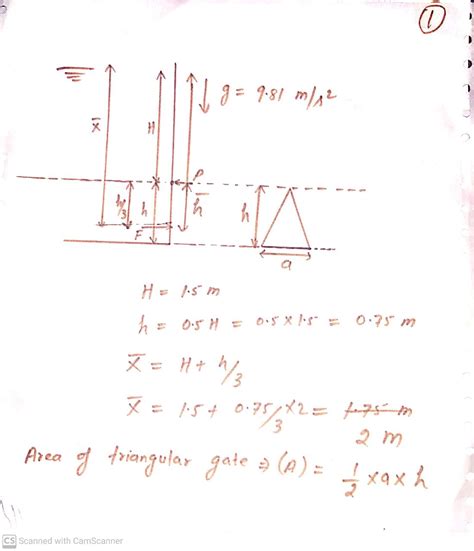 1
g = 9.81 m/s²
x̄
H
P
h/3
h
h̄
h
F
a
H = 1.5 m
h = 0.5 H = 0.5 x 1.5 = 0.75 m
x̄ = H + h/3
x̄ = 1.5 + 0.75/3 x 2 = 1.75 m
2 m
Area of triangular gate ⇒ (A) = 1/2 x a x h
CS Scanned with CamScanner